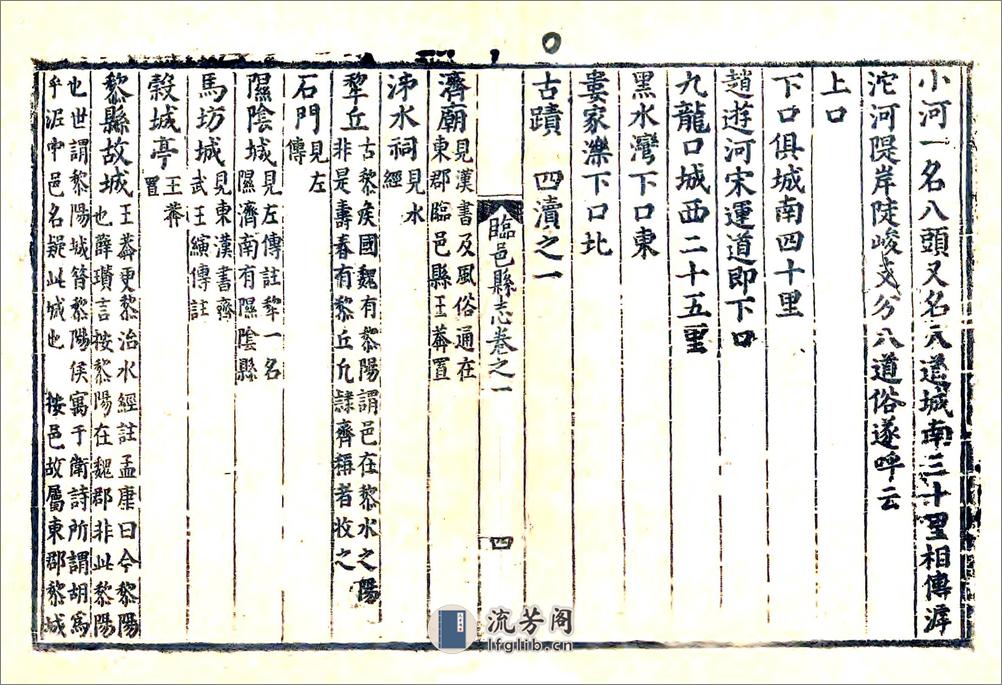 小河一名八頭又名八道城南三十里相傳滹
沱河隄岸陡峻支分八道俗遂呼云
上口
下口俱城南四十里
趙遊河宋運道即下口
九龍口城西二十五里
黑水灣下口東
婁家濼下口北
古蹟 四瀆之一
臨邑縣志卷之一 四
濟廟見漢書及風俗通在
東郡臨邑縣王莽置
泲水祠見水
經
犂丘古黎侯國魏有黎陽謂邑在黎水之陽
非是壽春有黎丘凡隸齊稱者收之
石門見左
傳
隰陰城見左傳註犂一名
隰濟南有隰陰縣
馬坊城見東漢書齊
武王縯傳註
穀城亭王莽
置
黎縣故城王莽更黎治水經註孟康曰今黎陽
也薛瓚言按黎陽在魏郡非此黎陽
也世謂黎陽城昔黎陽侯寓于衛詩所謂胡為
乎泥中邑名疑此城也 按邑故屬東郡黎城
流芳阁
lfglib.cn